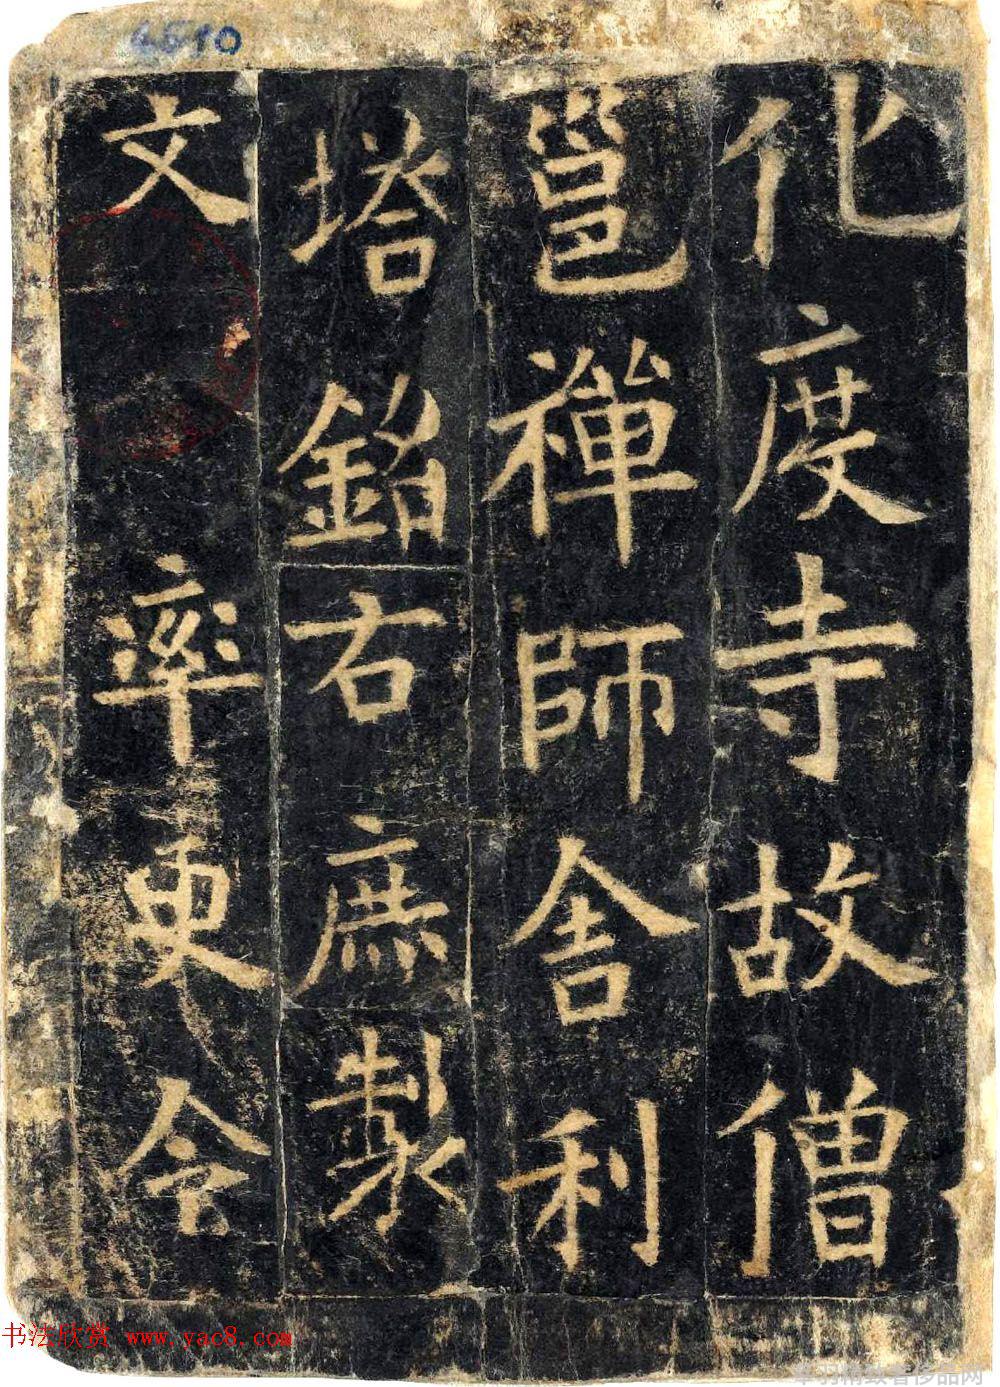 6510
化度寺故僧
邕禪師舍利
塔銘右庶製
文率更令
书法欣赏 www.yac8.com